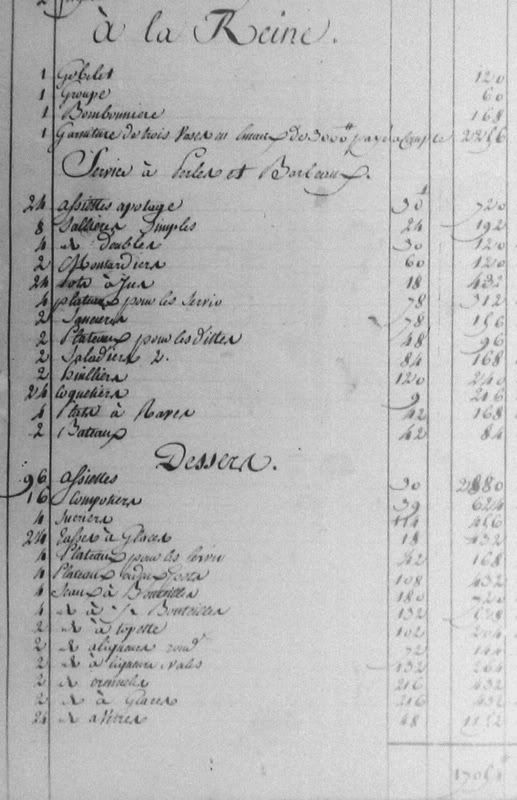 à la Reine.
1 Gobelet 120
1 Groupe 60
1 Bombonniere 168
1 Garniture de trois Vases en de 3000# 
Service à Perles et Barbeaux.
24 assiettes apotage 30 720
8 Sallieres Simples 24 192
4 d° doubles 30 120
2 Moutardiers 60 120
24 pots à Jus 18 432
4 plateaux pour les Servir 78 312
2 Sauciers 78 156
2 Plateaux pour les dittes 48 96
2 Saladiers 84 168
2 huilliers 120 240
24 Coquetiers 9 216
4 Plats à Raves 42 168
2 Bateaux 42 84
Dessert.
96 assiettes 30 2880
16 Compotiers 39 624
4 Sucriers 114 456
24 Tasses à Glaces 18 432
4 Plateaux pour les Servir 42 168
4 Plateaux 108 432
4 Seaux à Bouteilles 180 720
4 d° à ½ Bouteilles 132 528
2 d° à topette 102 204
2 d° aliqueurs rond 72 144
2 d° à liqueurs ovales 132 264
2 d° crennelés 216 432
2 d° à Glaces 216 432
24 d° a Verres 48 1152